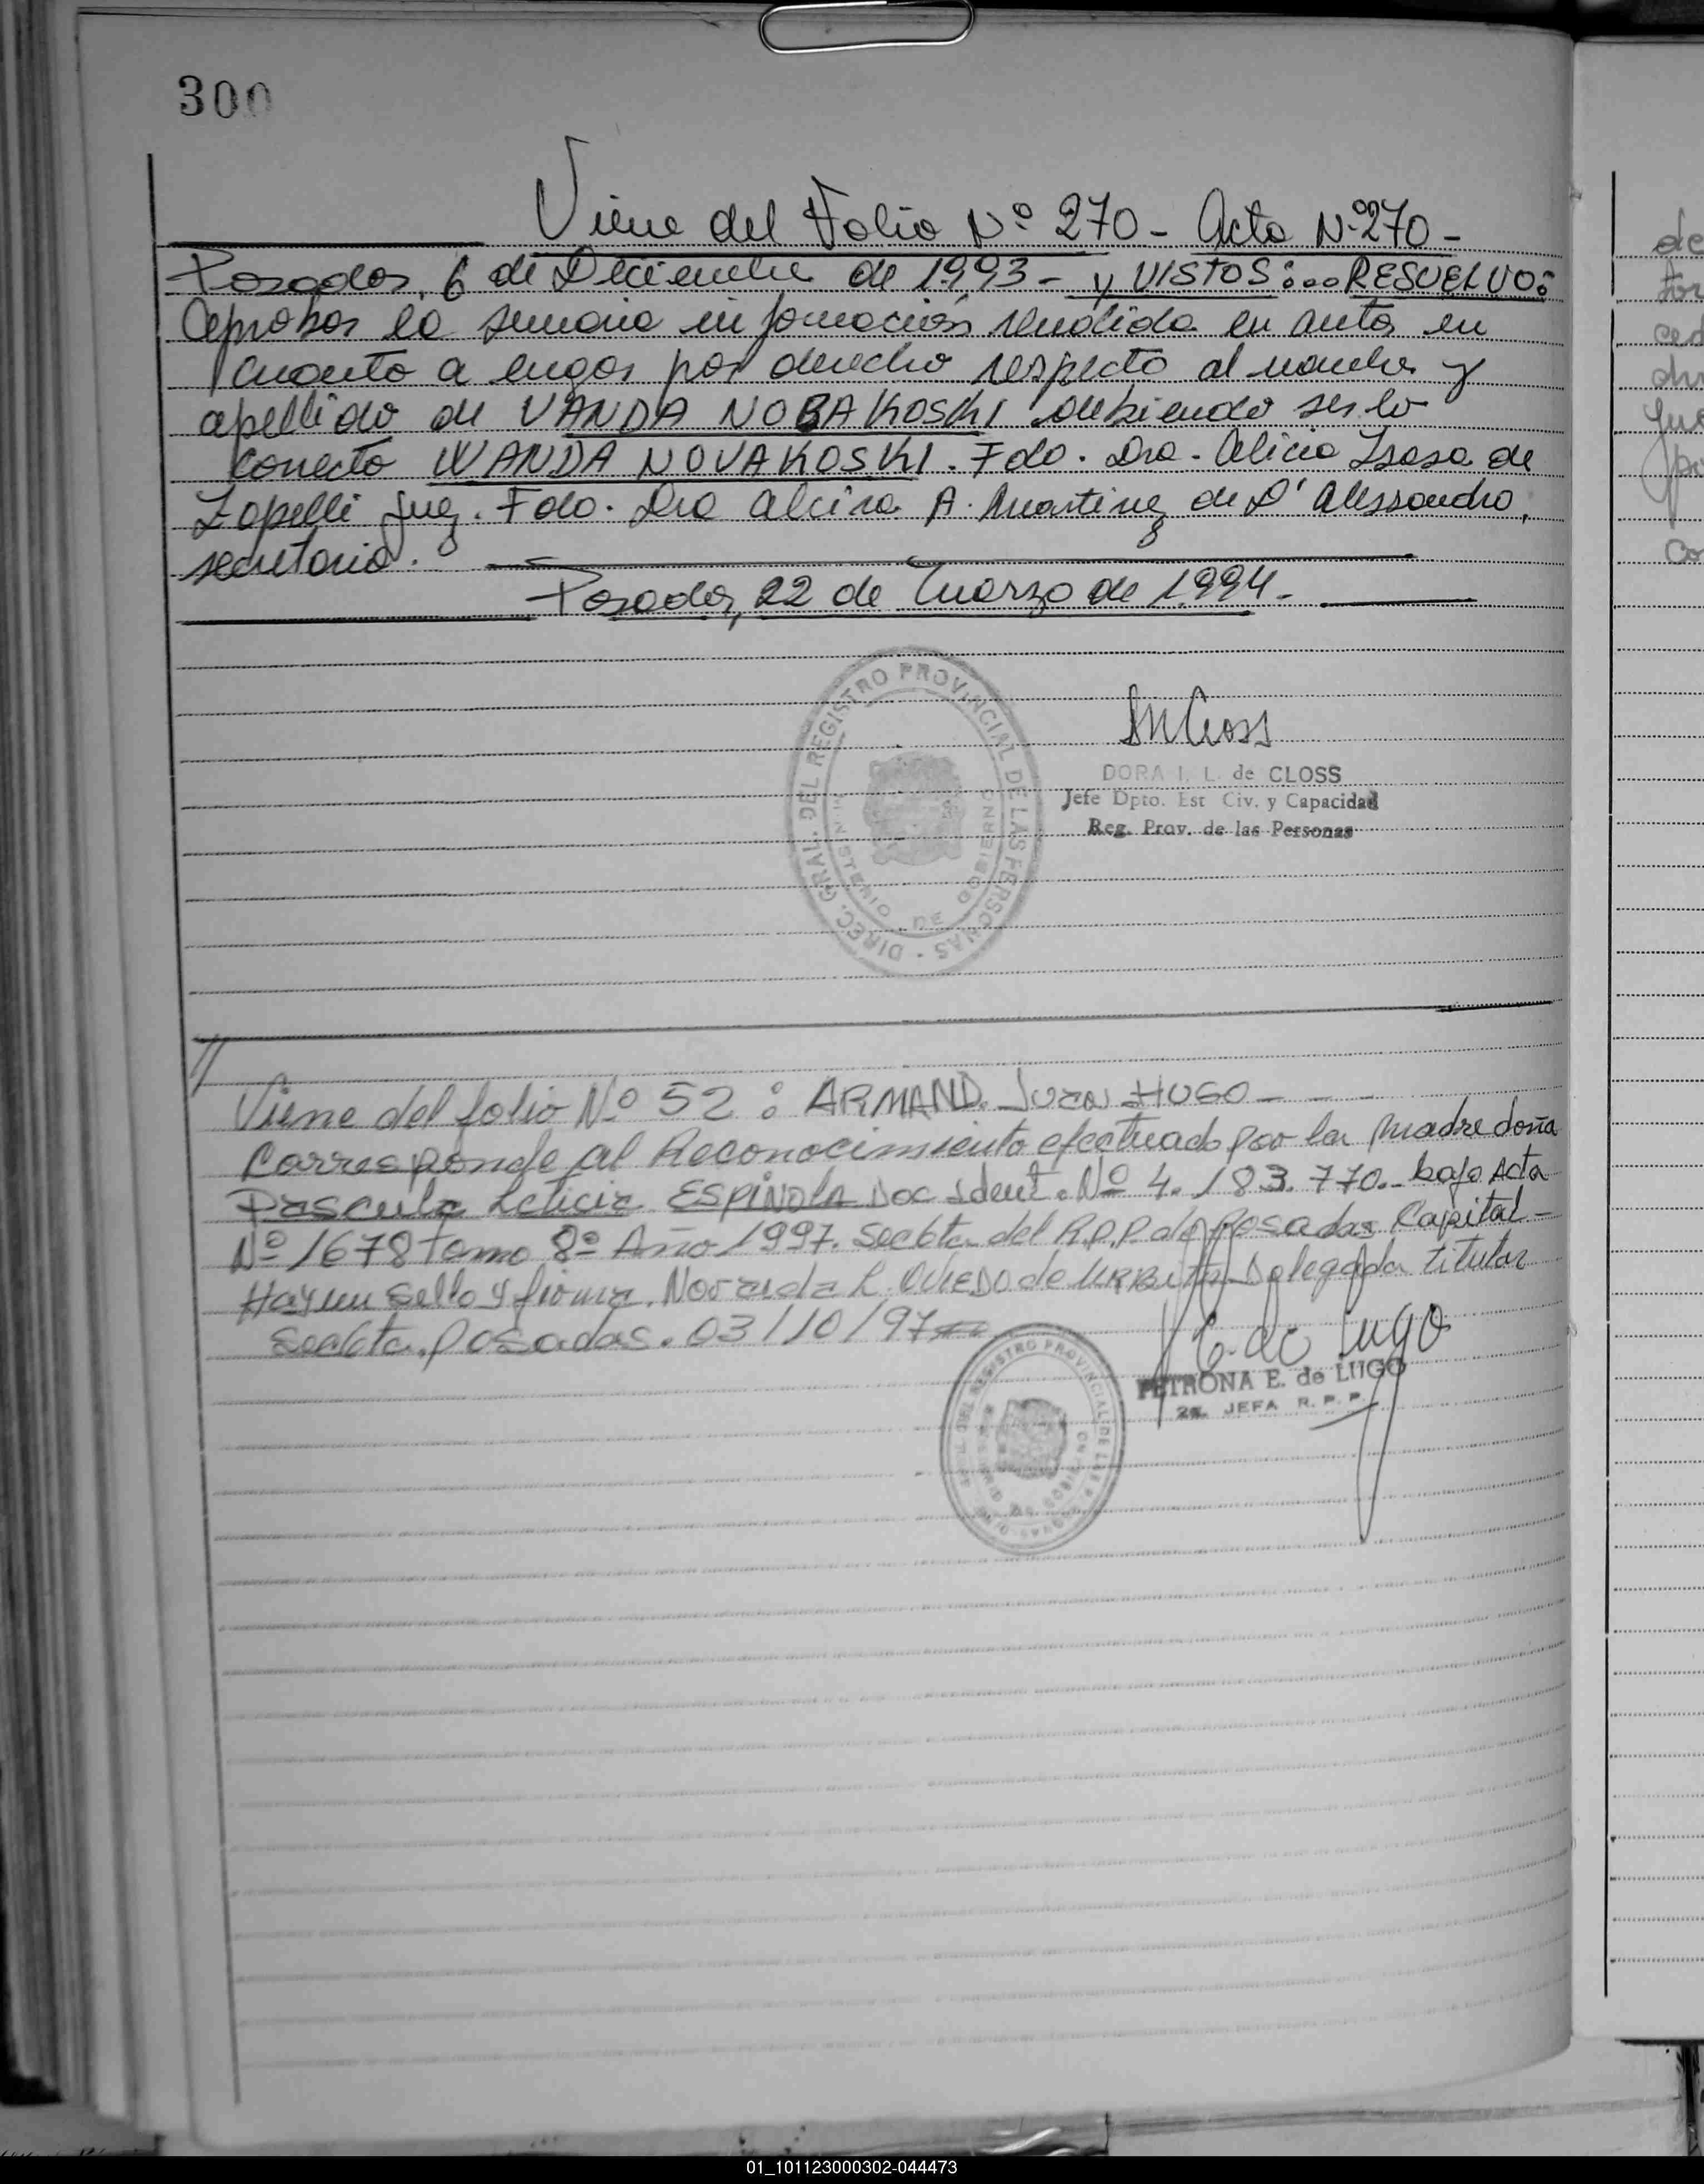 300
Viene del Folio Nº 270 - Acta Nº 270 -
Posadas, 6 de Diciembre de 1993 - y VISTOS:... RESUELVO:
Aprobar la sumaria información rendida en autos en
cuanto a lugar por derecho respecto al nombre y
apellido de VANDA NOBAKOSKI debiendo ser lo
correcto WANDA NOVAKOSKI. Fdo. Dra. Alicia Isasa de
Zapelli Juez. Fdo. Dra Alcira A. Martinez de D'Alessandro,
secretaria.
Posadas, 22 de Marzo de 1994.-
DIREC. GRAL. DEL REGISTRO PROVINCIAL DE LAS PERSONAS
MINISTERIO DE GOBIERNO
DORA I. L. de CLOSS
Jefe Dpto. Est Civ. y Capacidad
Reg. Prov. de las Personas
Viene del folio Nº 52 : ARMAND. Juan HUGO - - -
Corresponde al Reconocimiento efectuado por la Madre doña
Pascula Leticia ESPINOLA Doc Ident. Nº 4.183.770.- bajo Acta
Nº 1678 tomo 8º Año 1997. Secbta del R.P.P. de Posadas Capital -
Hay un Sello y firma. Noraida L. OVIEDO de URRUTIA Delegada titular
Secbta. Posadas. 03/10/97
E. de Lugo
PETRONA E. de LUGO
2a. JEFA R. P. P.
de
ced
Co
01_101123000302-044473